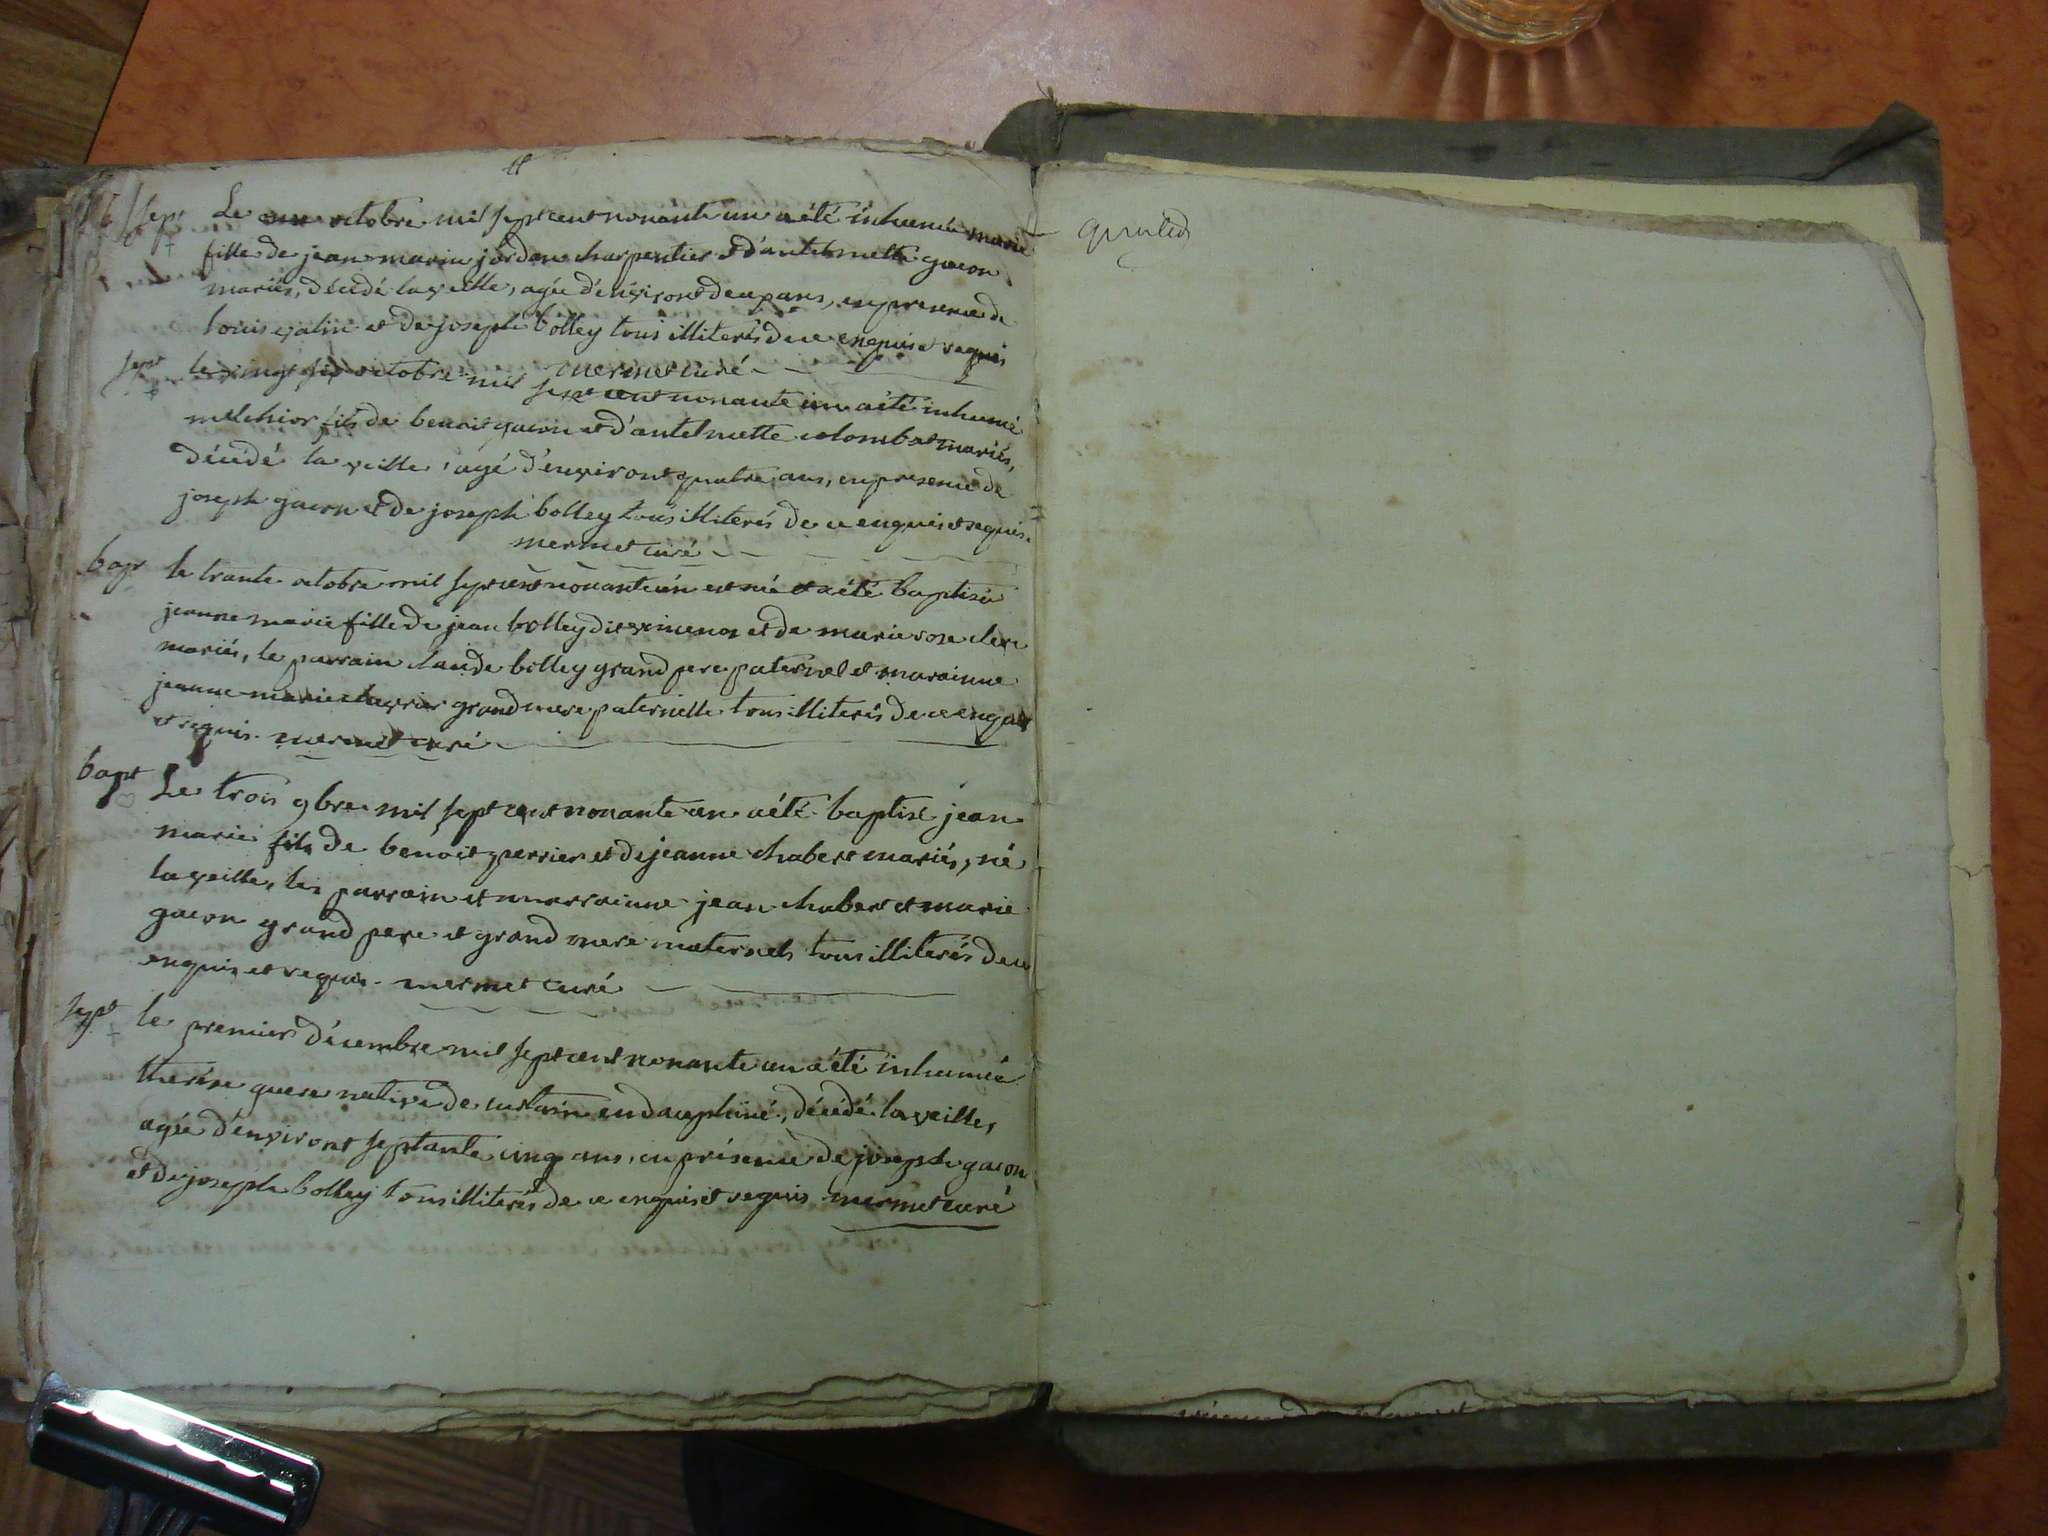 sept Le onze octobre mil sept cent nonante un a été inhumée marie
fille de jean marin jordan charpentier et d'antelmette gacon
mariés, décédé la veille, agée d'environt deux ans, en presence de
louis et de joseph bolley tous illiterés de ce enquis et requis
mermet curé
sept le vingt six octobre mil sept cent nonante un a été inhumé
melchior fils de benoit gacon et d'antelmette colombat mariés,
décédé la veille, agé d'environt quatre ans, en presence de
joseph gacon et de joseph bolley tous illiterés de ce enquis et requis.
mermet curé
bapt le trante octobre mil sept cent nonante un est né et a été baptisée
jeanne marie fille de jean bolley dit et de marie rose clerc
mariés, le parrain claude bolley grand pere paternel et marainne
jeanne marie grand mere paternelle tous illiterés de ce enquis
et requis. mermet curé
bapt Le trois 9bre mil sept cent nonante un a été baptisé jean
marie fils de benoit perrier et de jeanne chabert mariés, né
la veille, les parrain et marrainne jean chabert et marie
gacon grand pere et grand mere maternels tous illiterés de ce
enquis et requis. mermet curé
sept le premier décembre mil sept cent nonante un a été inhumée
therese native de en dauphiné, décédé la veille,
agée d'environt septante cinq ans, en présence de joseph gacon
et de joseph bolley tous illiterés de ce enquis et requis mermet curé